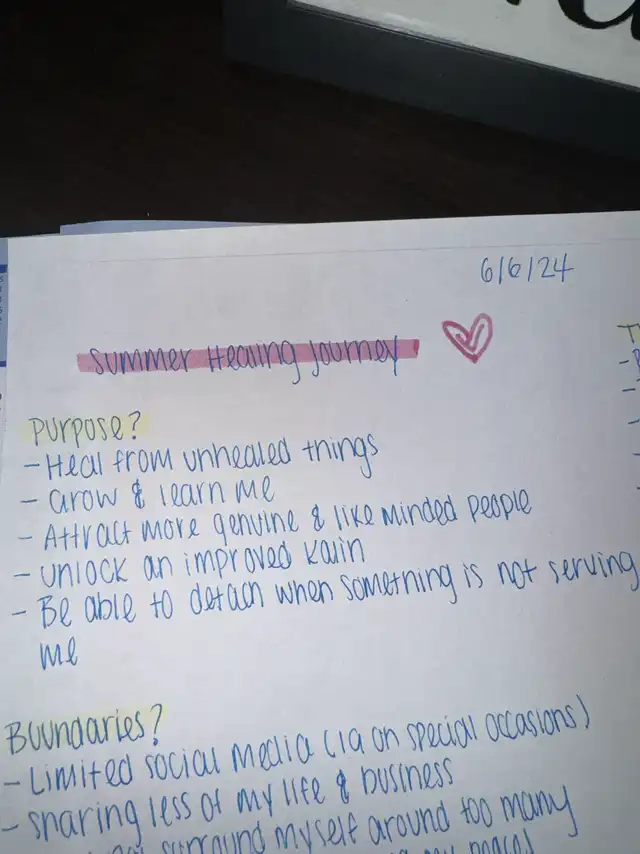 6/6/24
Summer Healing Journey
Purpose?
- Heal from unhealed things
- Grow & learn me
- Attract more genuine & like minded people
- Unlock an improved Kain
- Be able to detach when something is not serving
me
Boundaries?
- Limited social media (IG on special occasions)
- Sharing less of my life & business
surround myself around too many